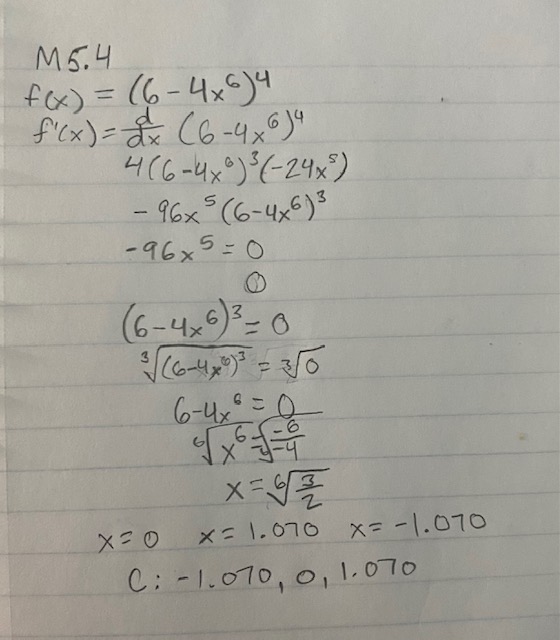 M5.4
f(x) = (6 - 4x⁶)⁴
f'(x) = d/dx (6 - 4x⁶)⁴
4(6 - 4x⁶)³(-24x⁵)
- 96x⁵(6 - 4x⁶)³
- 96x⁵ = 0
0
(6 - 4x⁶)³ = 0
∛(6 - 4x⁶)³ = ∛0
6 - 4x⁶ = 0
⁶√x⁶ = ⁶√-6/-4
x = ⁶√3/2
x = 0 x = 1.070 x = -1.070
C: -1.070, 0, 1.070